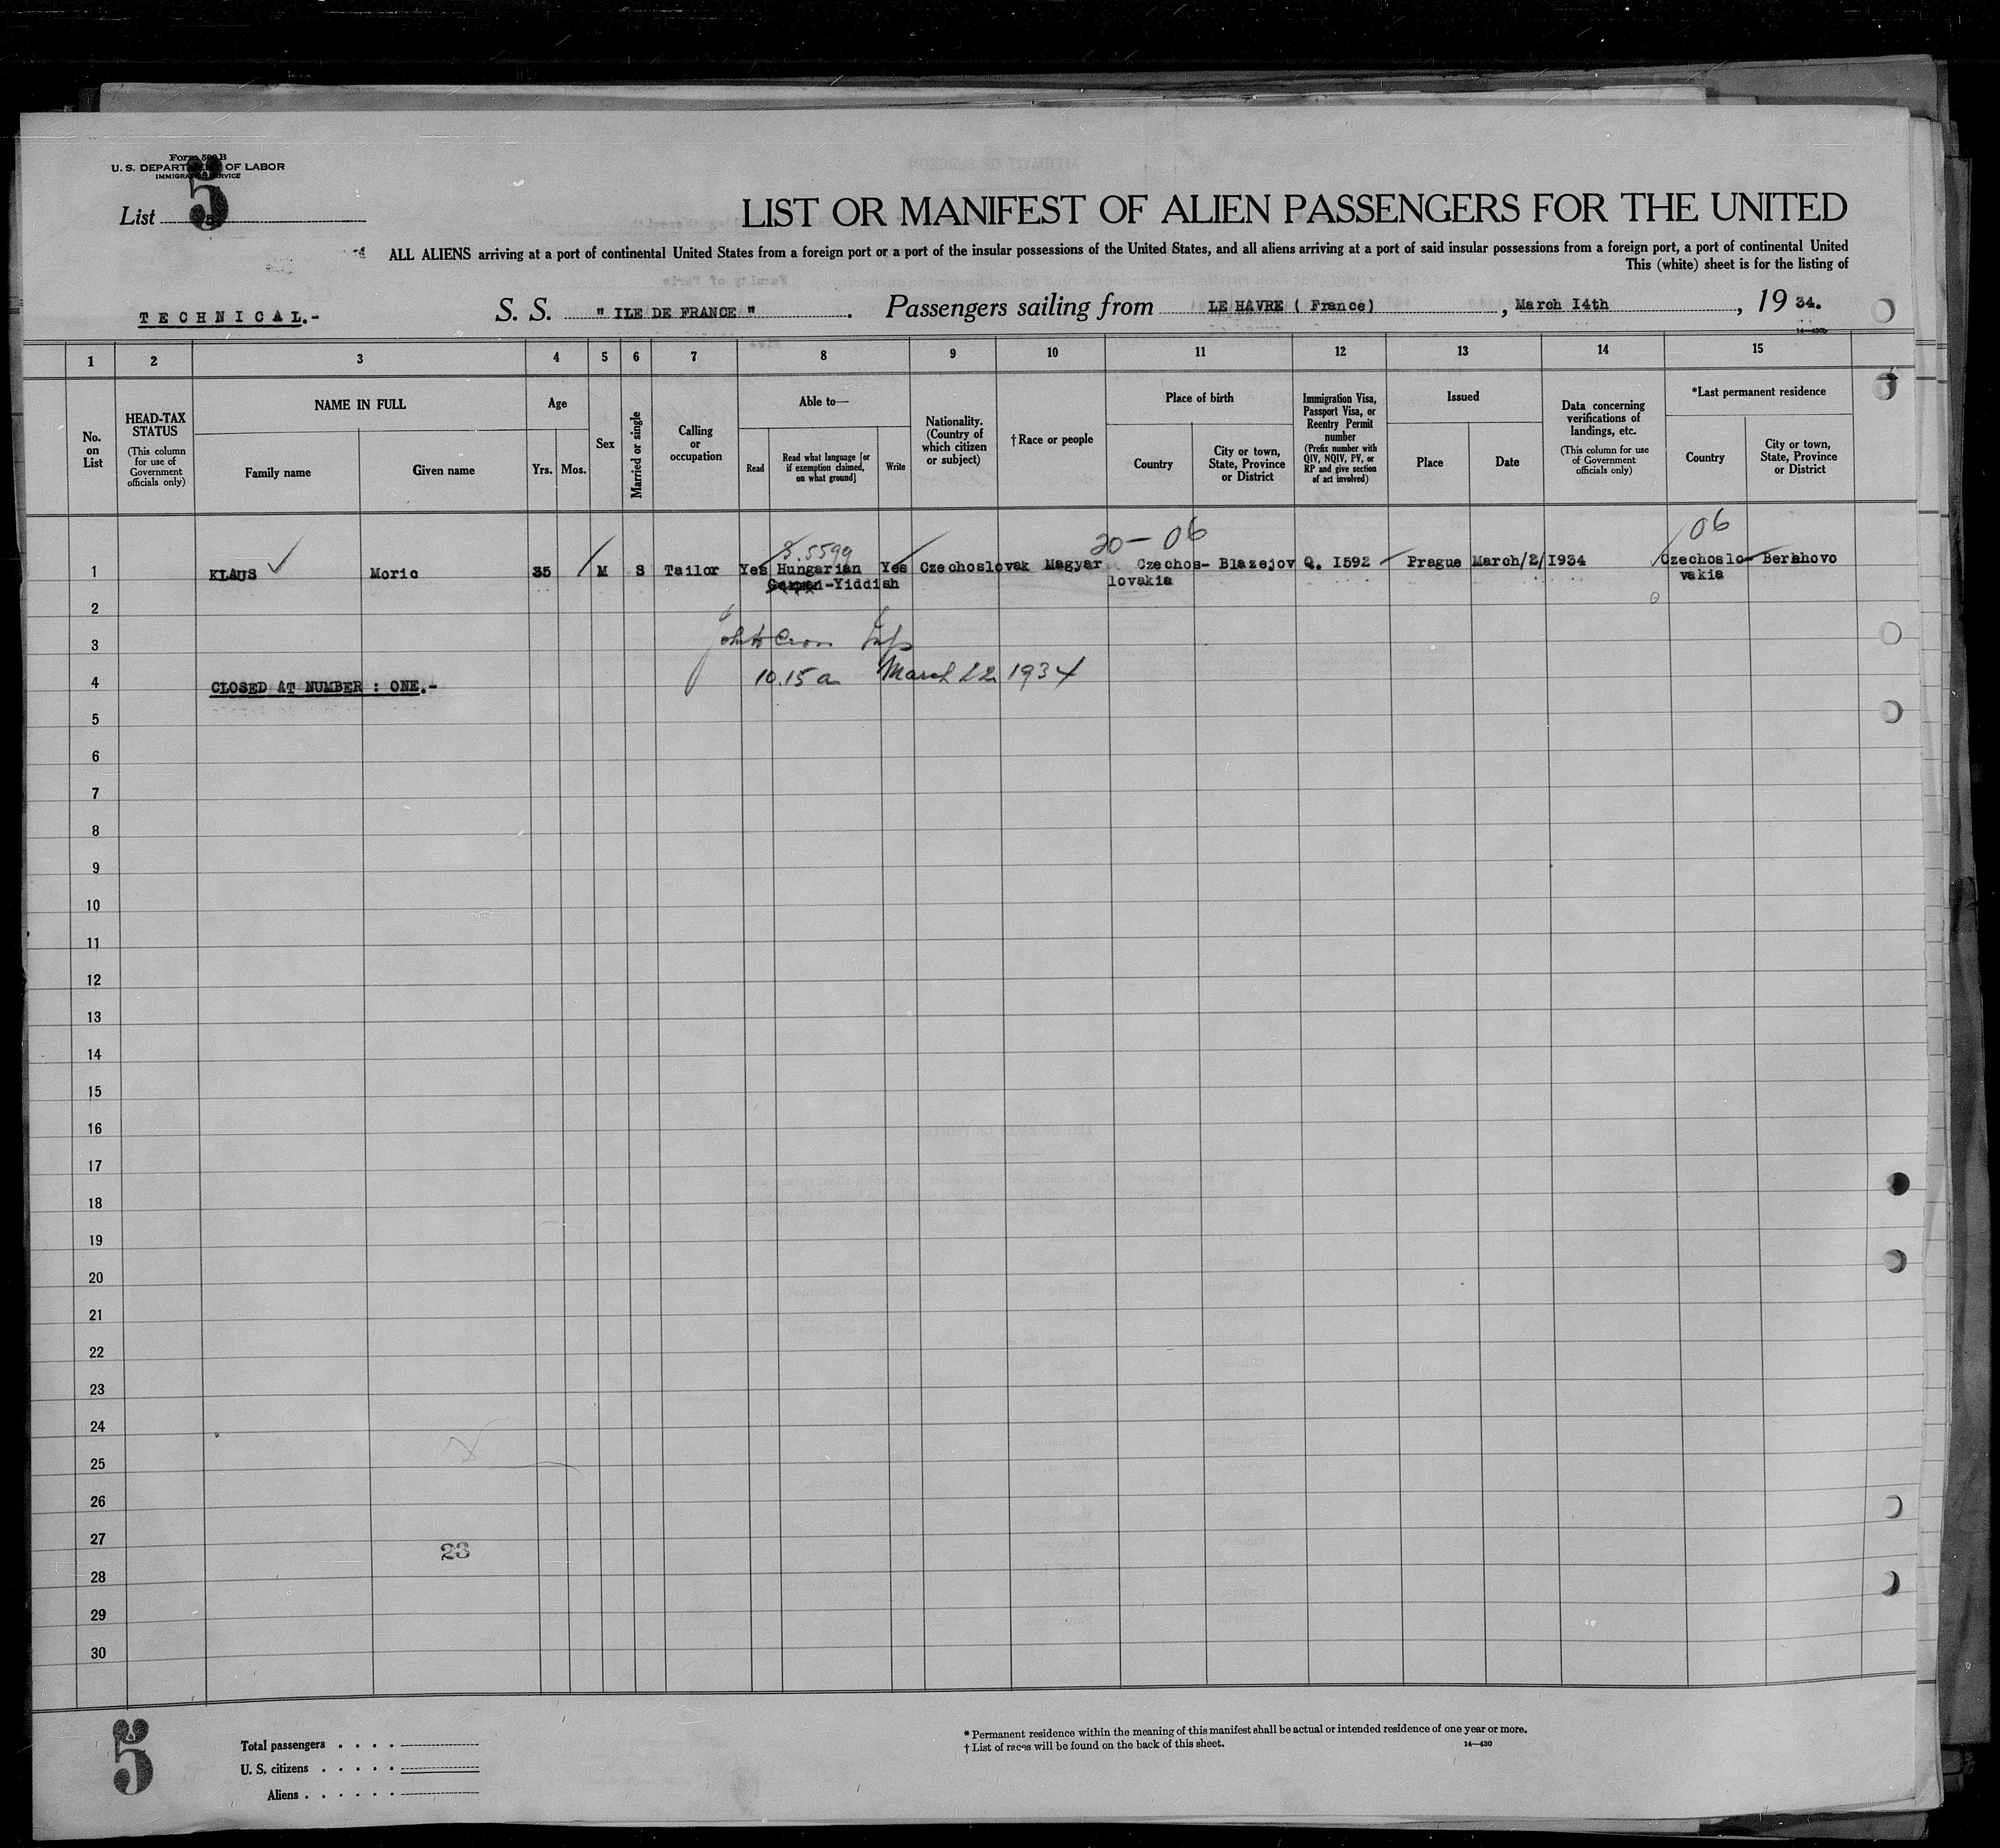 Form 500 B
U. S. DEPARTMENT OF LABOR
IMMIGRATION SERVICE
List 5
LIST OR MANIFEST OF ALIEN PASSENGERS FOR THE UNITED
ALL ALIENS arriving at a port of continental United States from a foreign port or a port of the insular possessions of the United States, and all aliens arriving at a port of said insular possessions from a foreign port, a port of continental United
This (white) sheet is for the listing of
TECHNICAL.- S. S. " ILE DE FRANCE " . Passengers sailing from LE HAVRE ( France) , March I4th , 19 34.
14—430
1 2 3 4 5 6 7 8 9 10 11 12 13 14 15
No. on List
HEAD-TAX STATUS
(This column for use of Government officials only)
NAME IN FULL
Family name
Given name
Age
Yrs. Mos.
Sex
Married or single
Calling or occupation
Able to—
Read
Read what language [or if exemption claimed, on what ground]
Write
Nationality. (Country of which citizen or subject)
† Race or people
Place of birth
Country
City or town, State, Province or District
Immigration Visa, Passport Visa, or Reentry Permit number
(Prefix number with QIV, NQIV, PV, or RP and give section of act involved)
Issued
Place
Date
Data concerning verifications of landings, etc.
(This column for use of Government officials only)
*Last permanent residence
Country
City or town, State, Province or District
S.5599 20-06 06
1 KLAUS Moric 35 M S Tailor Yes Hungarian Yes Czechoslovak Magyar Czechos- Blazejov Q. I592 Prague March/2/I934 Czechoslo- Berehovo
German-Yiddish lovakia vakia
2
3
10.15 a March 22 1934
4 CLOSED AT NUMBER : ONE.-
5
6
7
8
9
10
11
12
13
14
15
16
17
18
19
20
21
22
23
24
25
26
27
23
28
29
30
5
Total passengers . . . .
U. S. citizens . . . . .
Aliens . . . . . .
* Permanent residence within the meaning of this manifest shall be actual or intended residence of one year or more.
† List of races will be found on the back of this sheet.
14—430